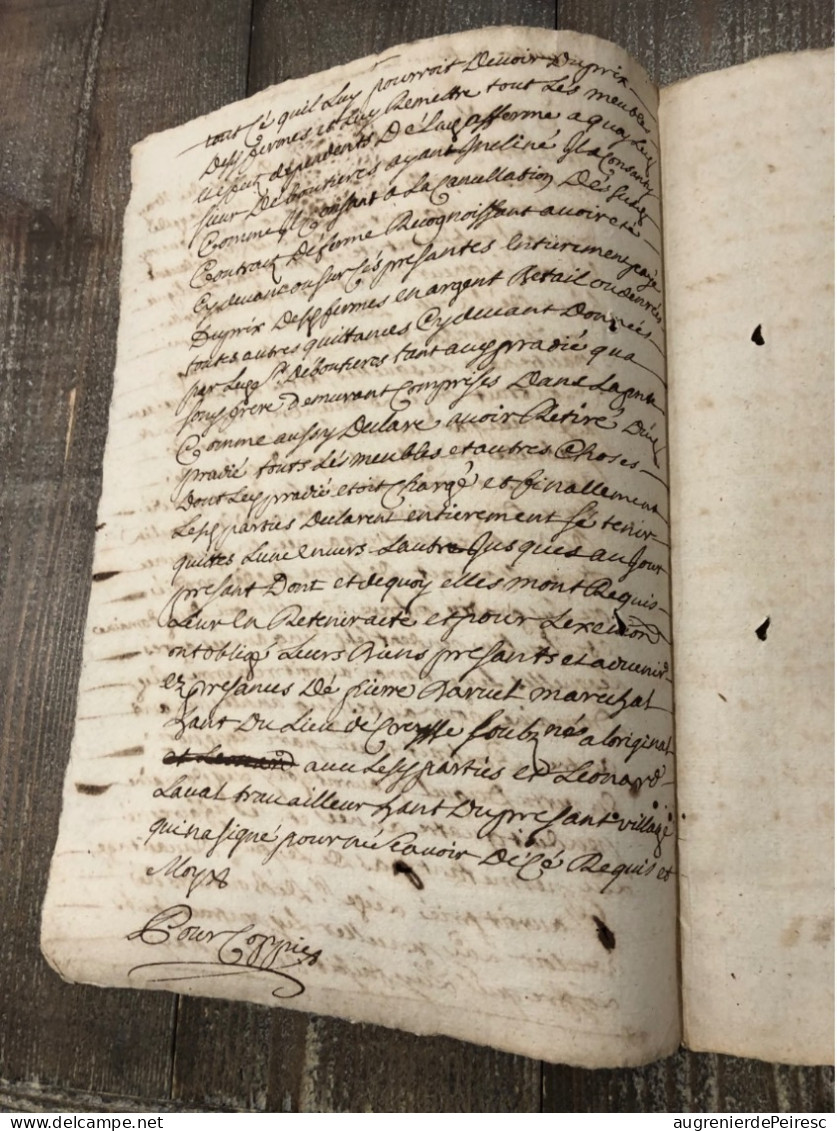 tout Cé quil Luy pourroit Devoir Du prix
Desd fermes et Luy Remettre tout Les meubles
dependents Dé Lad afferme a quoy Led
sieur Déboutieres ayant Incliné Il a Consanty
Comme Il Consant a La Cancellation Desd
Contract Dé ferme Recognoissant avoir eté
Cy devanc ou sur Cés presantes Entierement payé
Du prix Desd fermes en argent Betail ou denrées
toutes autres quittances Cy devant Données
par Led Sr Déboutieres tant aud pradié qua
son frere Demurant Comprises Dans La pnte
Comme aussy Declare avoir Retiré Dud
pradié touts Lés meubles et autres Choses
Dont Led pradié etoit Chargé et finallement
Lesd parties Declarent entierement sé tenir
quittes Lune envers Lautre Jusques au Jour
presant Dont et de quoy elles mont Requis
Leur en Retenir acte et pour Lexecuon
ont obligé Leurs biens presants et advenir
ez presances Dé pierre marechal
hant Du Lieu dé Creysse soubz nés a loriginal
et Leonard avec Lesd parties et Leonard
Laval travailleur hant Du presant village
qui na signé pour né scavoir Dé Cé Requis et
Moy
Pour Coppie
augrenierdePeiresc